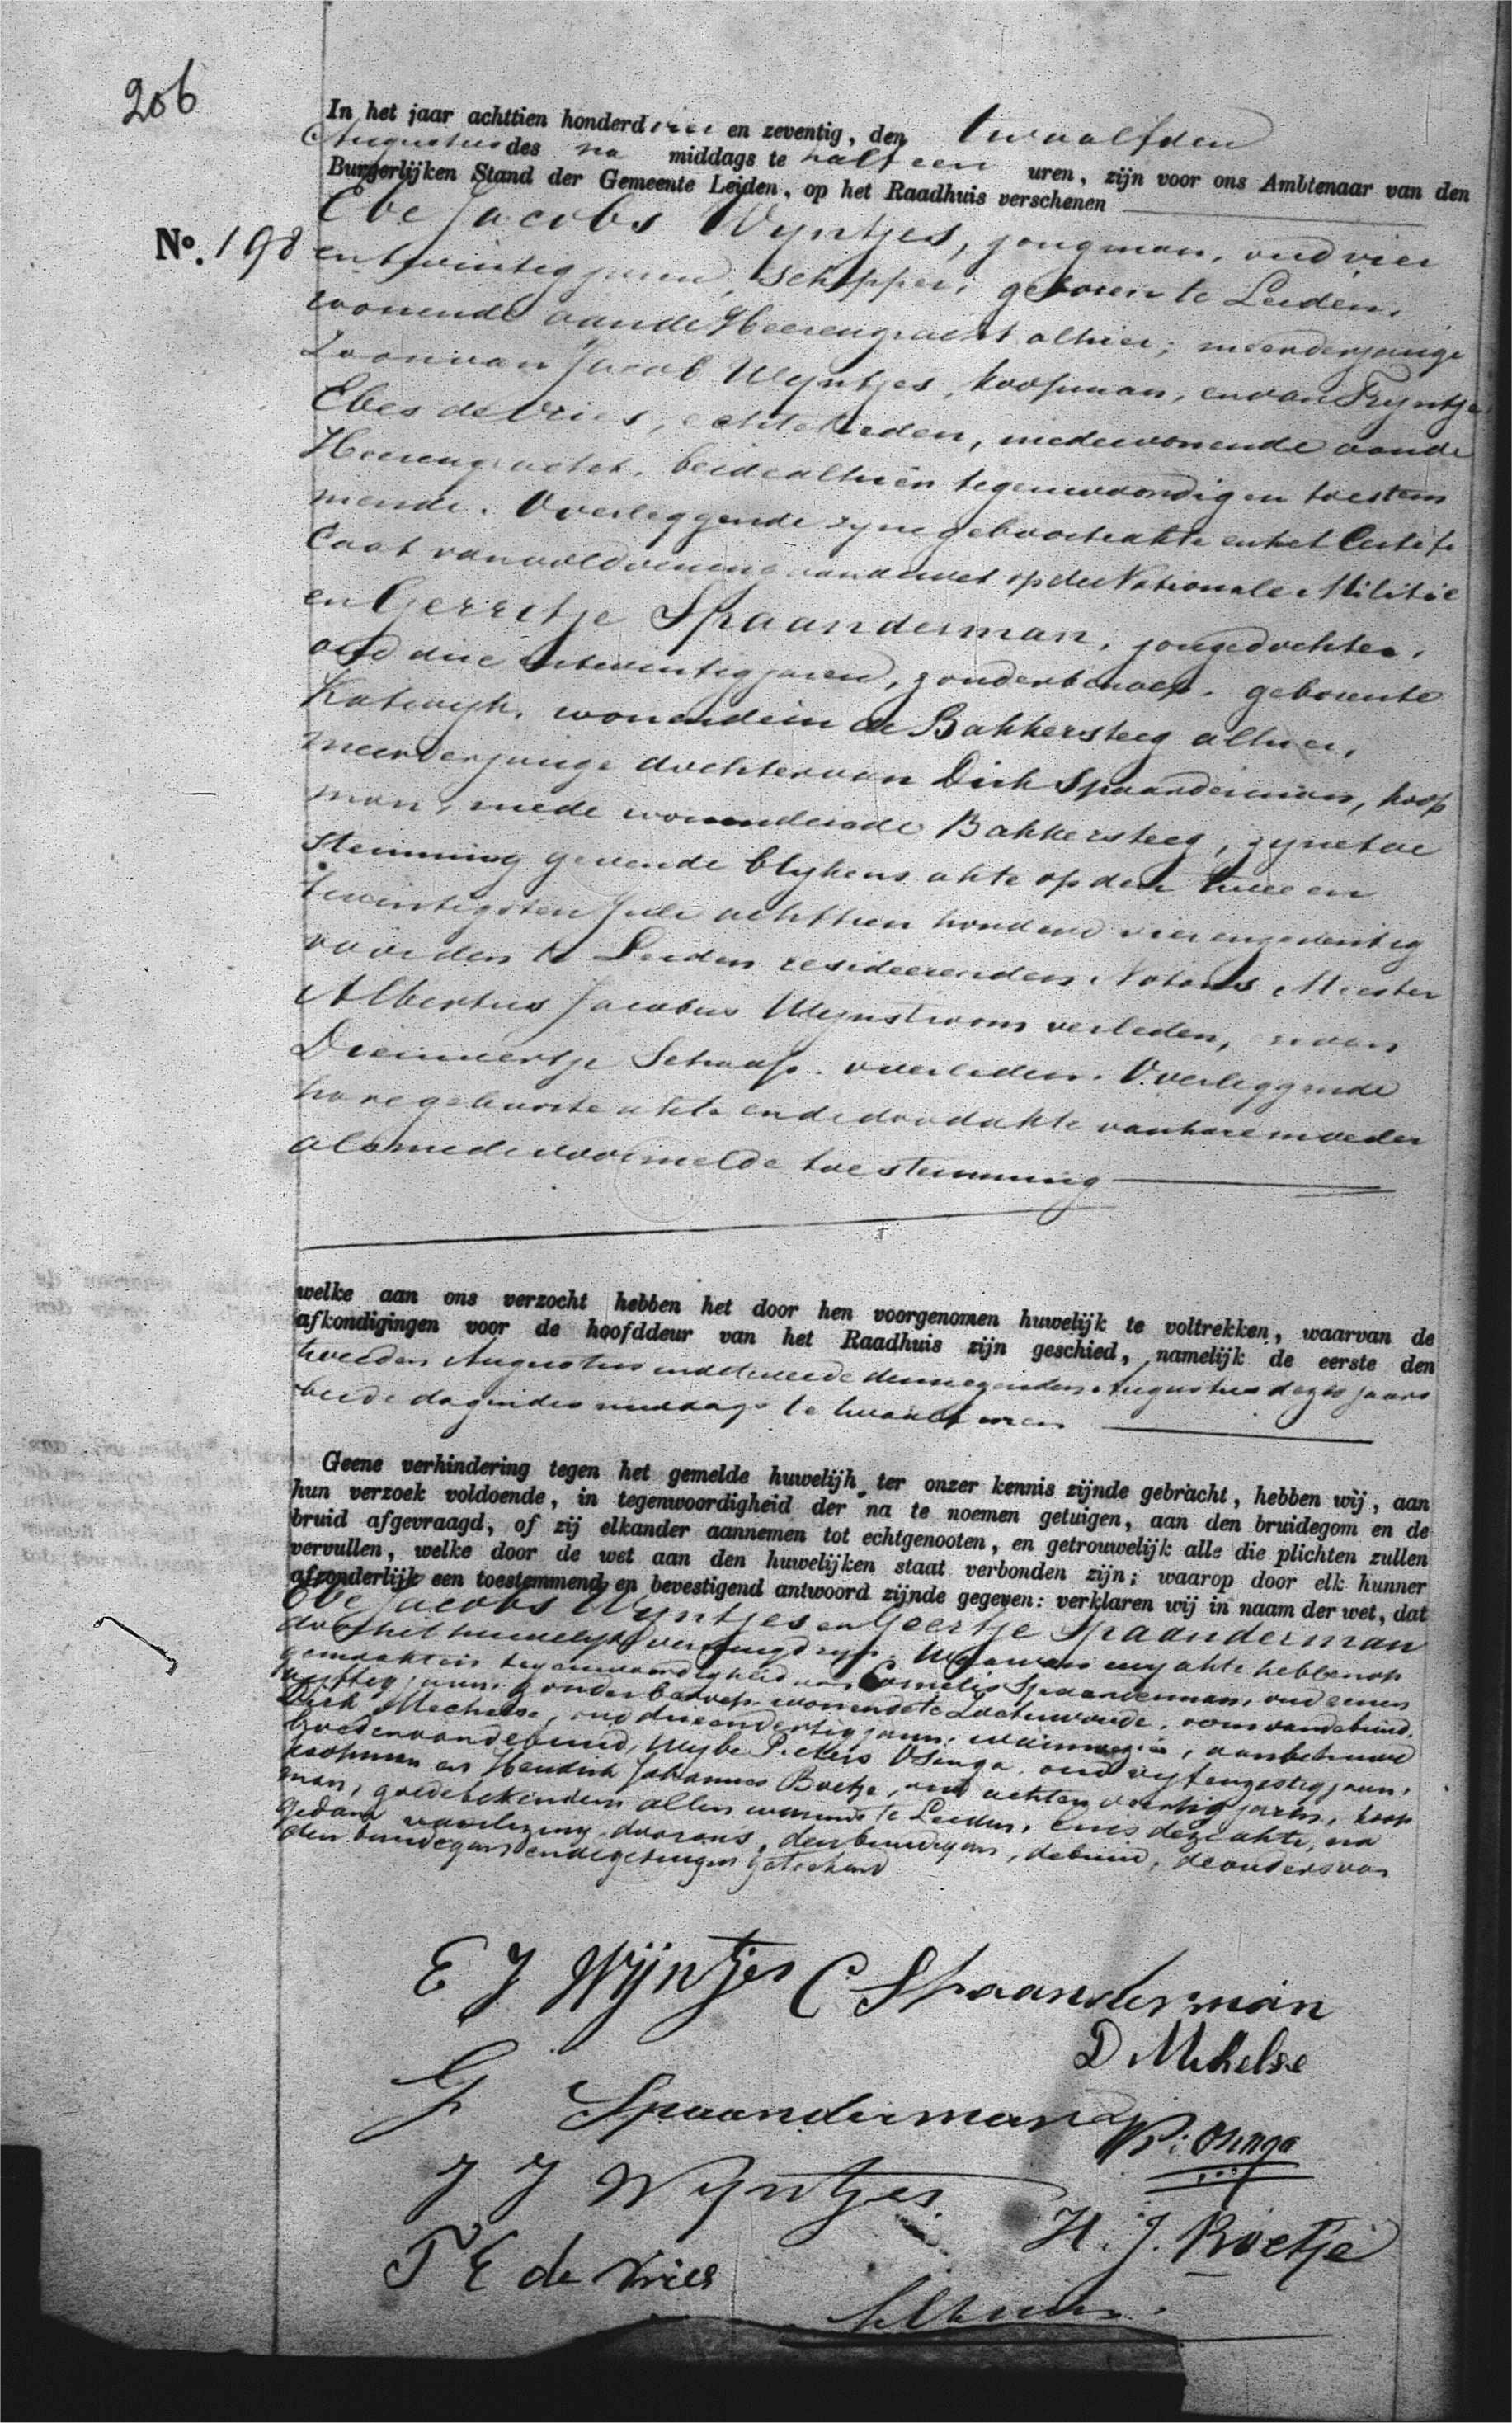 206
In het jaar achttien honderd vier en zeventig, den twaalfden
Augustus des na middags te half een uren, zijn voor ons Ambtenaar van den
Burgerlijken Stand der Gemeente Leiden, op het Raadhuis verschenen
No. 198
Ebe Jacobs Wyntjes, jongman, oud vier
en twintig jaren, schipper, geboren te Leiden,
wonende aan de Heerengracht alhier, meerderjarige
Zoon van Jacob Wyntjes, koopman, en van Tryntje
Ebes de Vries, echtelieden, mede wonende aan de
Heerengracht, beide alhier tegenwoordig en toestem
mende. Overleggende zyne geboorteakte en het Certifi
caat van voldoening aan de wet op de Nationale Militie
en Gerritje Spaanderman, jongedochter,
oud drie entwintig jaren, zonder beroep, geboren te
Katwijk, wonende in de Bakkersteeg alhier,
meerderjarige dochter van Dirk Spaanderman, koop
man, mede wonende in de Bakkersteeg, zyne toe
stemming gevende blykens akte op den twee en
twintigsten Juli achttien honderd vier en zeventig
voor den te Leiden resideerenden Notaris Meester
Albertus Jacobus Wynstroom verleden, en van
Diewertje Schaap, overleden. Overleggende
hare geboorte akte en de doodakte van hare moeder
alsmede voormelde toestemming
welke aan ons verzocht hebben het door hen voorgenomen huwelijk te voltrekken, waarvan de
afkondigingen voor de hoofddeur van het Raadhuis zijn geschied, namelijk de eerste den
tweeden Augustus en de tweede den negenden Augustus dezes jaars
beide dagen des middags te twaalf uren
Geene verhindering tegen het gemelde huwelijk ter onzer kennis zijnde gebracht, hebben wij, aan
hun verzoek voldoende, in tegenwoordigheid der na te noemen getuigen, aan den bruidegom en de
bruid afgevraagd, of zij elkander aannemen tot echtgenooten, en getrouwelijk alle die plichten zullen
vervullen, welke door de wet aan den huwelijken staat verbonden zijn; waarop door elk hunner
afzonderlijk een toestemmend en bevestigend antwoord zijnde gegeven: verklaren wij in naam der wet, dat
Ebe Jacobs Wyntjes en Geertje Spaanderman
door het huwelyk vereenigd zyn. Waarvan wy akte hebben op
gemaakt in tegenwoordigheid van Cornelis Spaanderman, oud eenen
jaren, zonder beroep wonende te Zoeterwoude, oom van de bruid,
Dirk Mechelse, oud drieendertig jaren, aanbehuwd
broeder van de bruid, Wybe Pieters Osinga, oud vyf en zestig jaren,
koopman en Hendrik Johannes Boetje, oud acht en veertig jaren, koop
man, goede bekenden allen wonende te Leiden. En is deze akte, na
gedane voorlezing door ons, den bruidegom, de bruid, de ouders van
den bruidegom en de getuigen geteekend
E J Wijntjes C Spaanderman
D Mechelse
G Spaanderman
W P. Osinga
J J Wyntjes
H. J. Boetje
T E de Vries